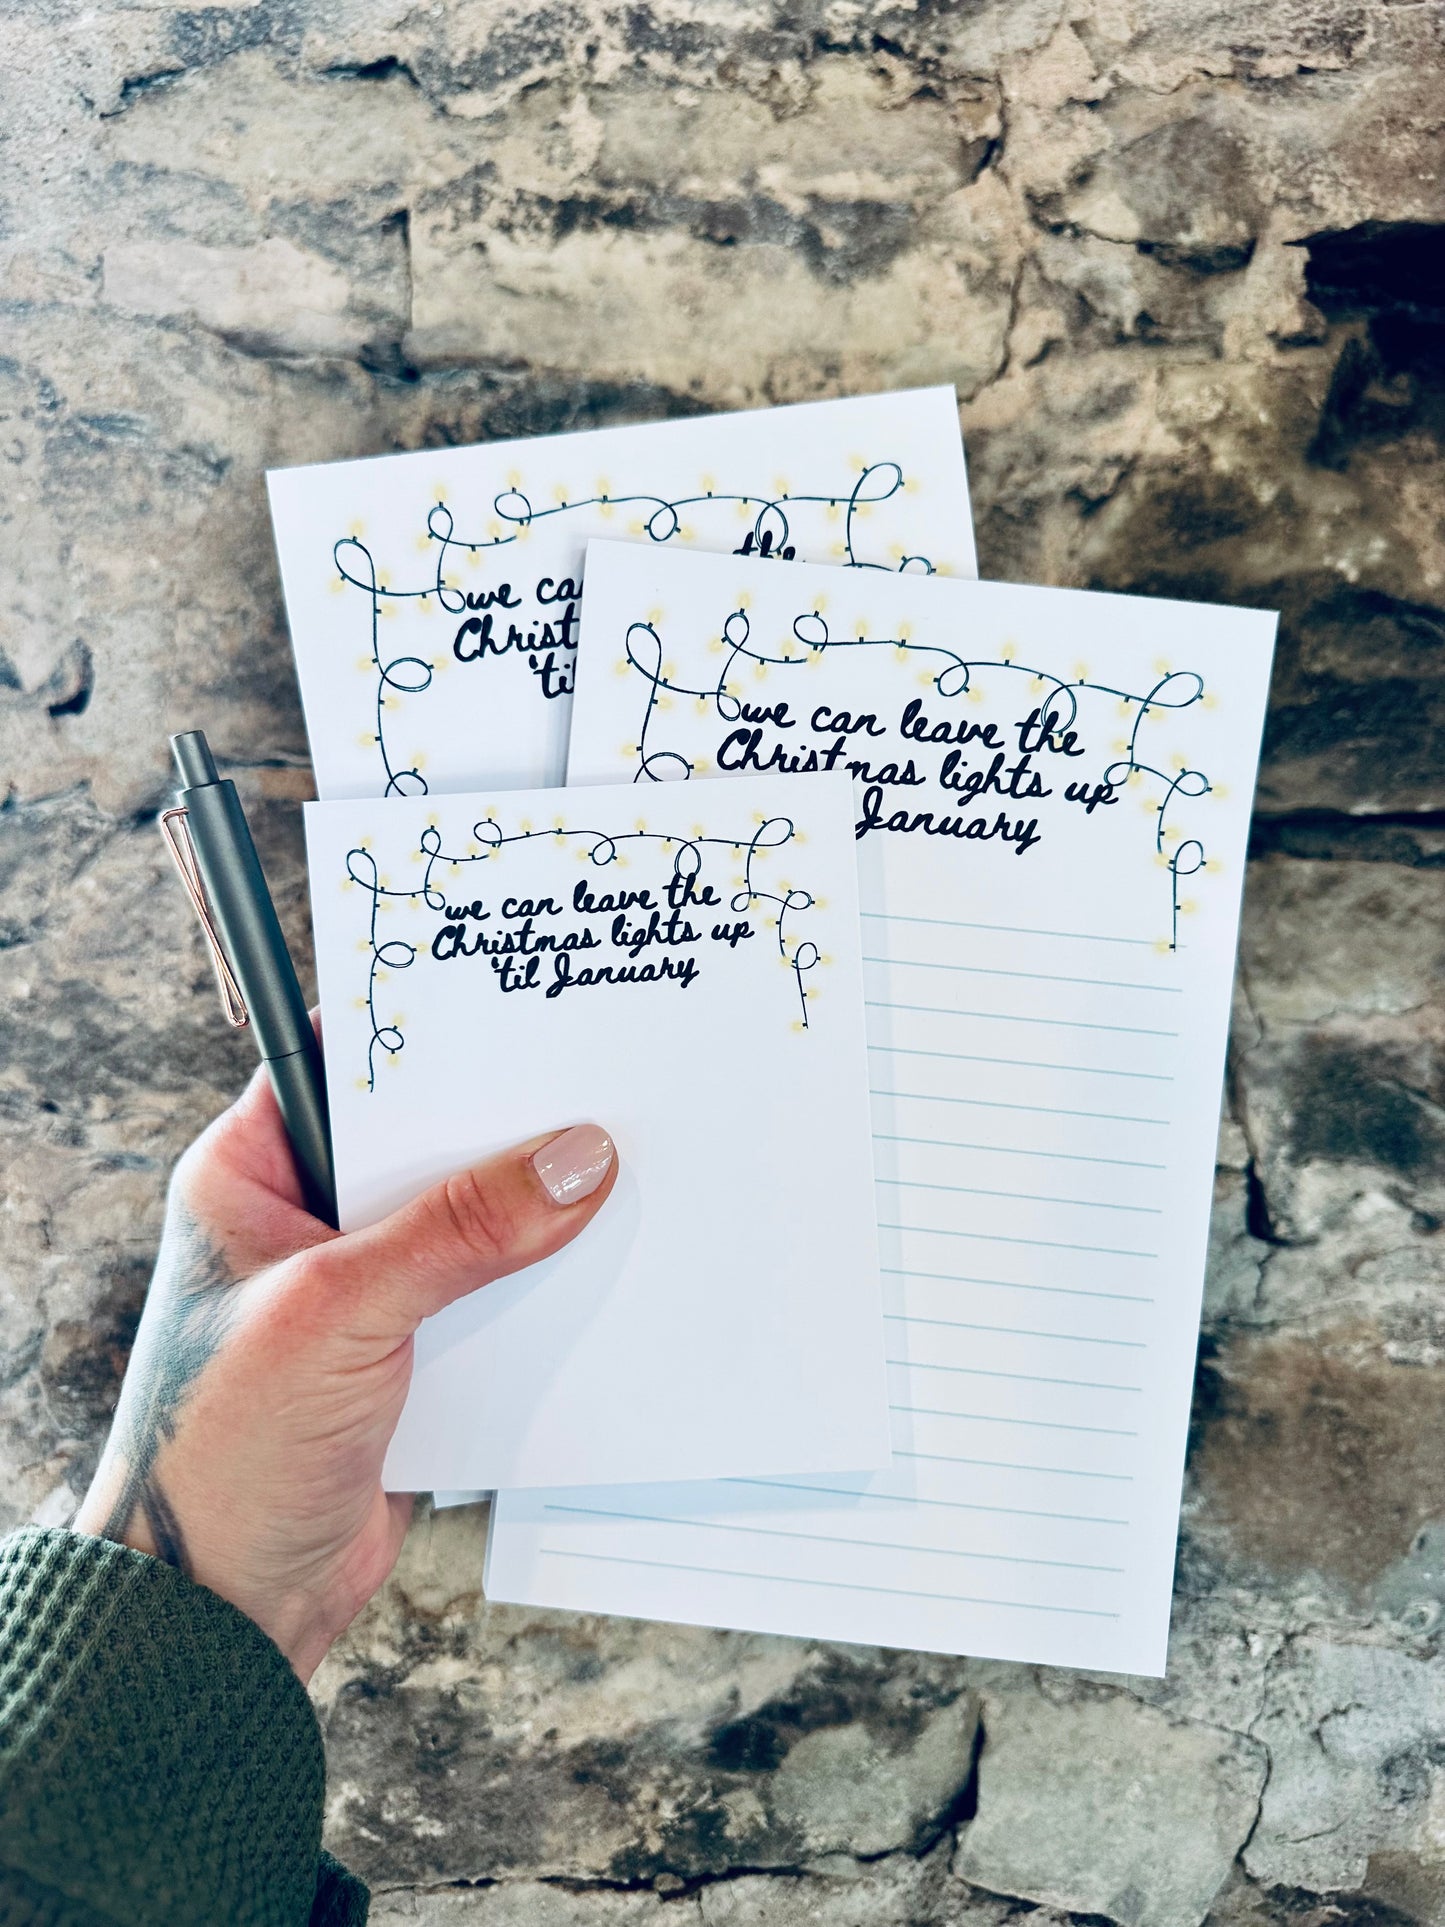 the
we ca
Christ
'ti
we can leave the
Christmas lights up
January
we can leave the
Christmas lights up
'til January